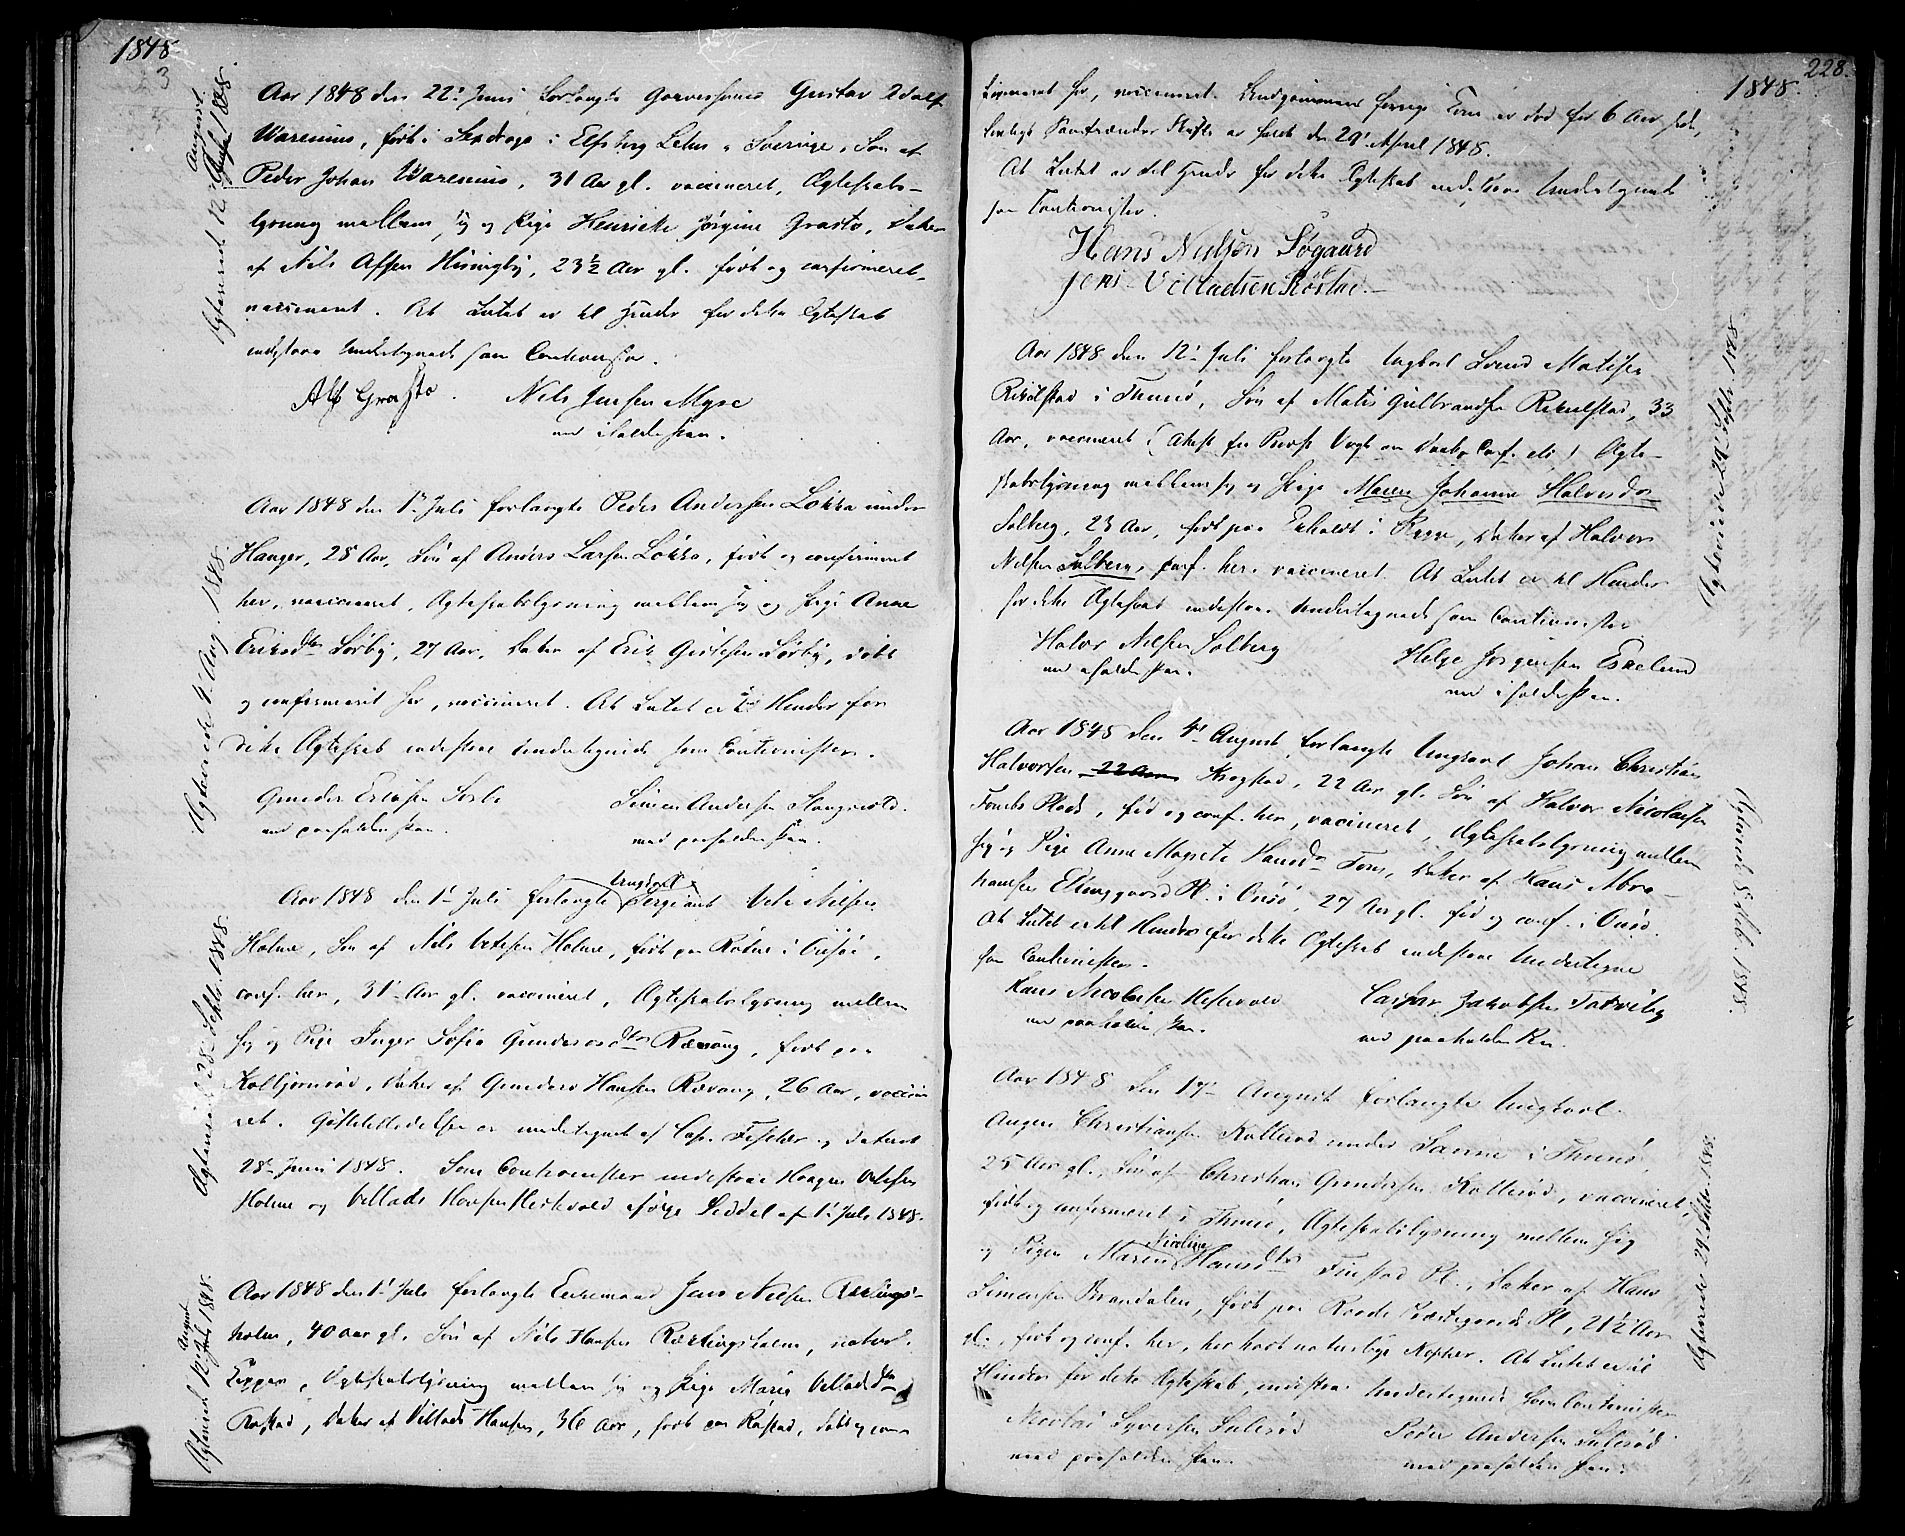 1848
Aar 1848 den 22' Juni forlangte Garversvend Gustav Adolf
Warenius, født i i Elfsborg Lehn i Sverige, Søn af
Peder Johan Warenius, 31 Aar gl. vaccineret, Ægteskabs-
lysning mellem sig og Pige Henricke Jørgine Grasto, Datter
af Nils Huningby, 23½ Aar gl. født og confirmeret
vaccineret. At Intet er til Hinder for dette Ægteskab
indestaae Undertegnede som Cautionister.
Alf Grasto. Nils Jensen Myre
med iholden Pen.
Ægteviet 12 August 1848.
Aar 1848 den 1' Juli forlangte Peder Andersen Lokka under
Hauger, 28 Aar, Søn af Anders Larsen Lokka, født og confirmeret
her, vaccineret, Ægteskabslysning mellem sig og Pige Anne
Eriksdtr Sørby, 27 Aar, Datter af Erik Sørby, født
og confirmeret her, vaccineret. At Intet er til Hinder for
dette Ægteskab indestaae Undertegnede som Cautionister.
Gunder Eriksen Sørbe Simen Andersen
med paaholden Pen. med paaholden Pen.
Ægteviede 4' Aug. 1848.
Aar 1848 den 1' Juli forlangte Ungkarl Sergeant Nilsen
Holme, Søn af Nils Holme, født paa i Onsøe,
conf. her, 31 Aar gl. vaccineret, Ægteskabslysning mellem
sig og Pige Inger Sofia Gundersdtr Rævang, født paa
Kolbjørnrød, Datter af Gunders Hansen Rævang, 26 Aar, vaccine
ret. er undertegnet af Cap. Fischer og dateret
28' Juni 1848. Som Cautionister indestaae Haagen
Holme og Villads Hansen ifølge Seddel af 1' Juli 1848.
Ægteviet 28' Septbr. 1848.
Aar 1848 den 1' Juli forlangte Enkemand Jens Nilsen
holm, 40 aar gl. Søn af Nils Hansen naturl.
Kopper, Ægteskabslysning mellem sig og Pige Maria Villadsdtr
Rostad, Datter af Villads Hansen, 36 Aar, født paa Rostad, født og con-
Ægteviet 12' August 1848.
228.
1848.
firmeret her, vaccineret. Brudgommens forrige Kone er død for 6 Aar siden,
Skifte er holdt den 29' April 1848.
At Intet er til Hinder for dette Ægteskab indestaae Undertegnede
som Cautionister.
Hans Nielsen Søgaard
Jens Villadsen Røstad.
Aar 1848 den 12' Juli forlangte Ungkarl Svend Matisen
Rikolstad i Thunø, Søn af Matis Gulbrandsen Rikulstad, 33
Aar, vaccineret (Attest fra Provst Vogt om Daab, Conf. etc) Ægte-
skabslysning mellem sig og Pige Maren Johanne Halvorsdtr
Solberg, 23 Aar, født paa Ekholdt i Rygge, Datter af Halvor
Nilsen Solberg, conf. her. vaccineret. At Intet er til Hinder
for dette Ægteskab indestaae Undertegnede som Cautionister
Halvor Nilsen Solberg Helge Jørgensen Eskelund
med iholden Pen. med iholden Pen.
Ægteviede 29' Septbr 1848
Aar 1848 den 4' August forlangte Ungkarl Johan Christian
Halvorsen 22 Aar Krogstad, 22 Aar gl. Søn af Halvor Nicolaisen
Tomb Plads, fød og conf. her, vaccineret, Ægteskabslysning mellem
sig og Pige Anne Magrete Hansdtr Tom, Datter af Hans Abra-
hamsen Elinggaard Pl. i Onsø, 27 Aar gl. fød og conf. i Onsø.
At Intet er til Hinder for dette Ægteskab indestaae Undertegne
som Cautionister.
Hans Nicolaisen Hestevold Casper Jakobsen Tatvitby
med paaholden Pen. med paaholden Pen.
1848.
Aar 1848 den 17' August forlangte Ungkarl
August Christiansen Kollerød under i Thunø,
25 Aar gl., Søn af Christian Gundersen Kollerød, vaccineret,
født og confirmeret i Thunø, Ægteskabslysning mellem sig
og Pigen Maren Nicoline Hansdtr Finstad Pl., Datter af Hans
Simensen Brandalen, født paa Raade Præstegaards Pl, 21½ Aar
gl., født og conf. her, har havt naturlige Kopper. At Intet er til
Hinder for dette Ægteskab, indestaae Undertegnede som Cautionister
Nicolai Syversen Sulerød Peder Andersen Sulerød
med paaholden Pen. med paaholden Pen.
Ægteviede 29' Septbr. 1848.